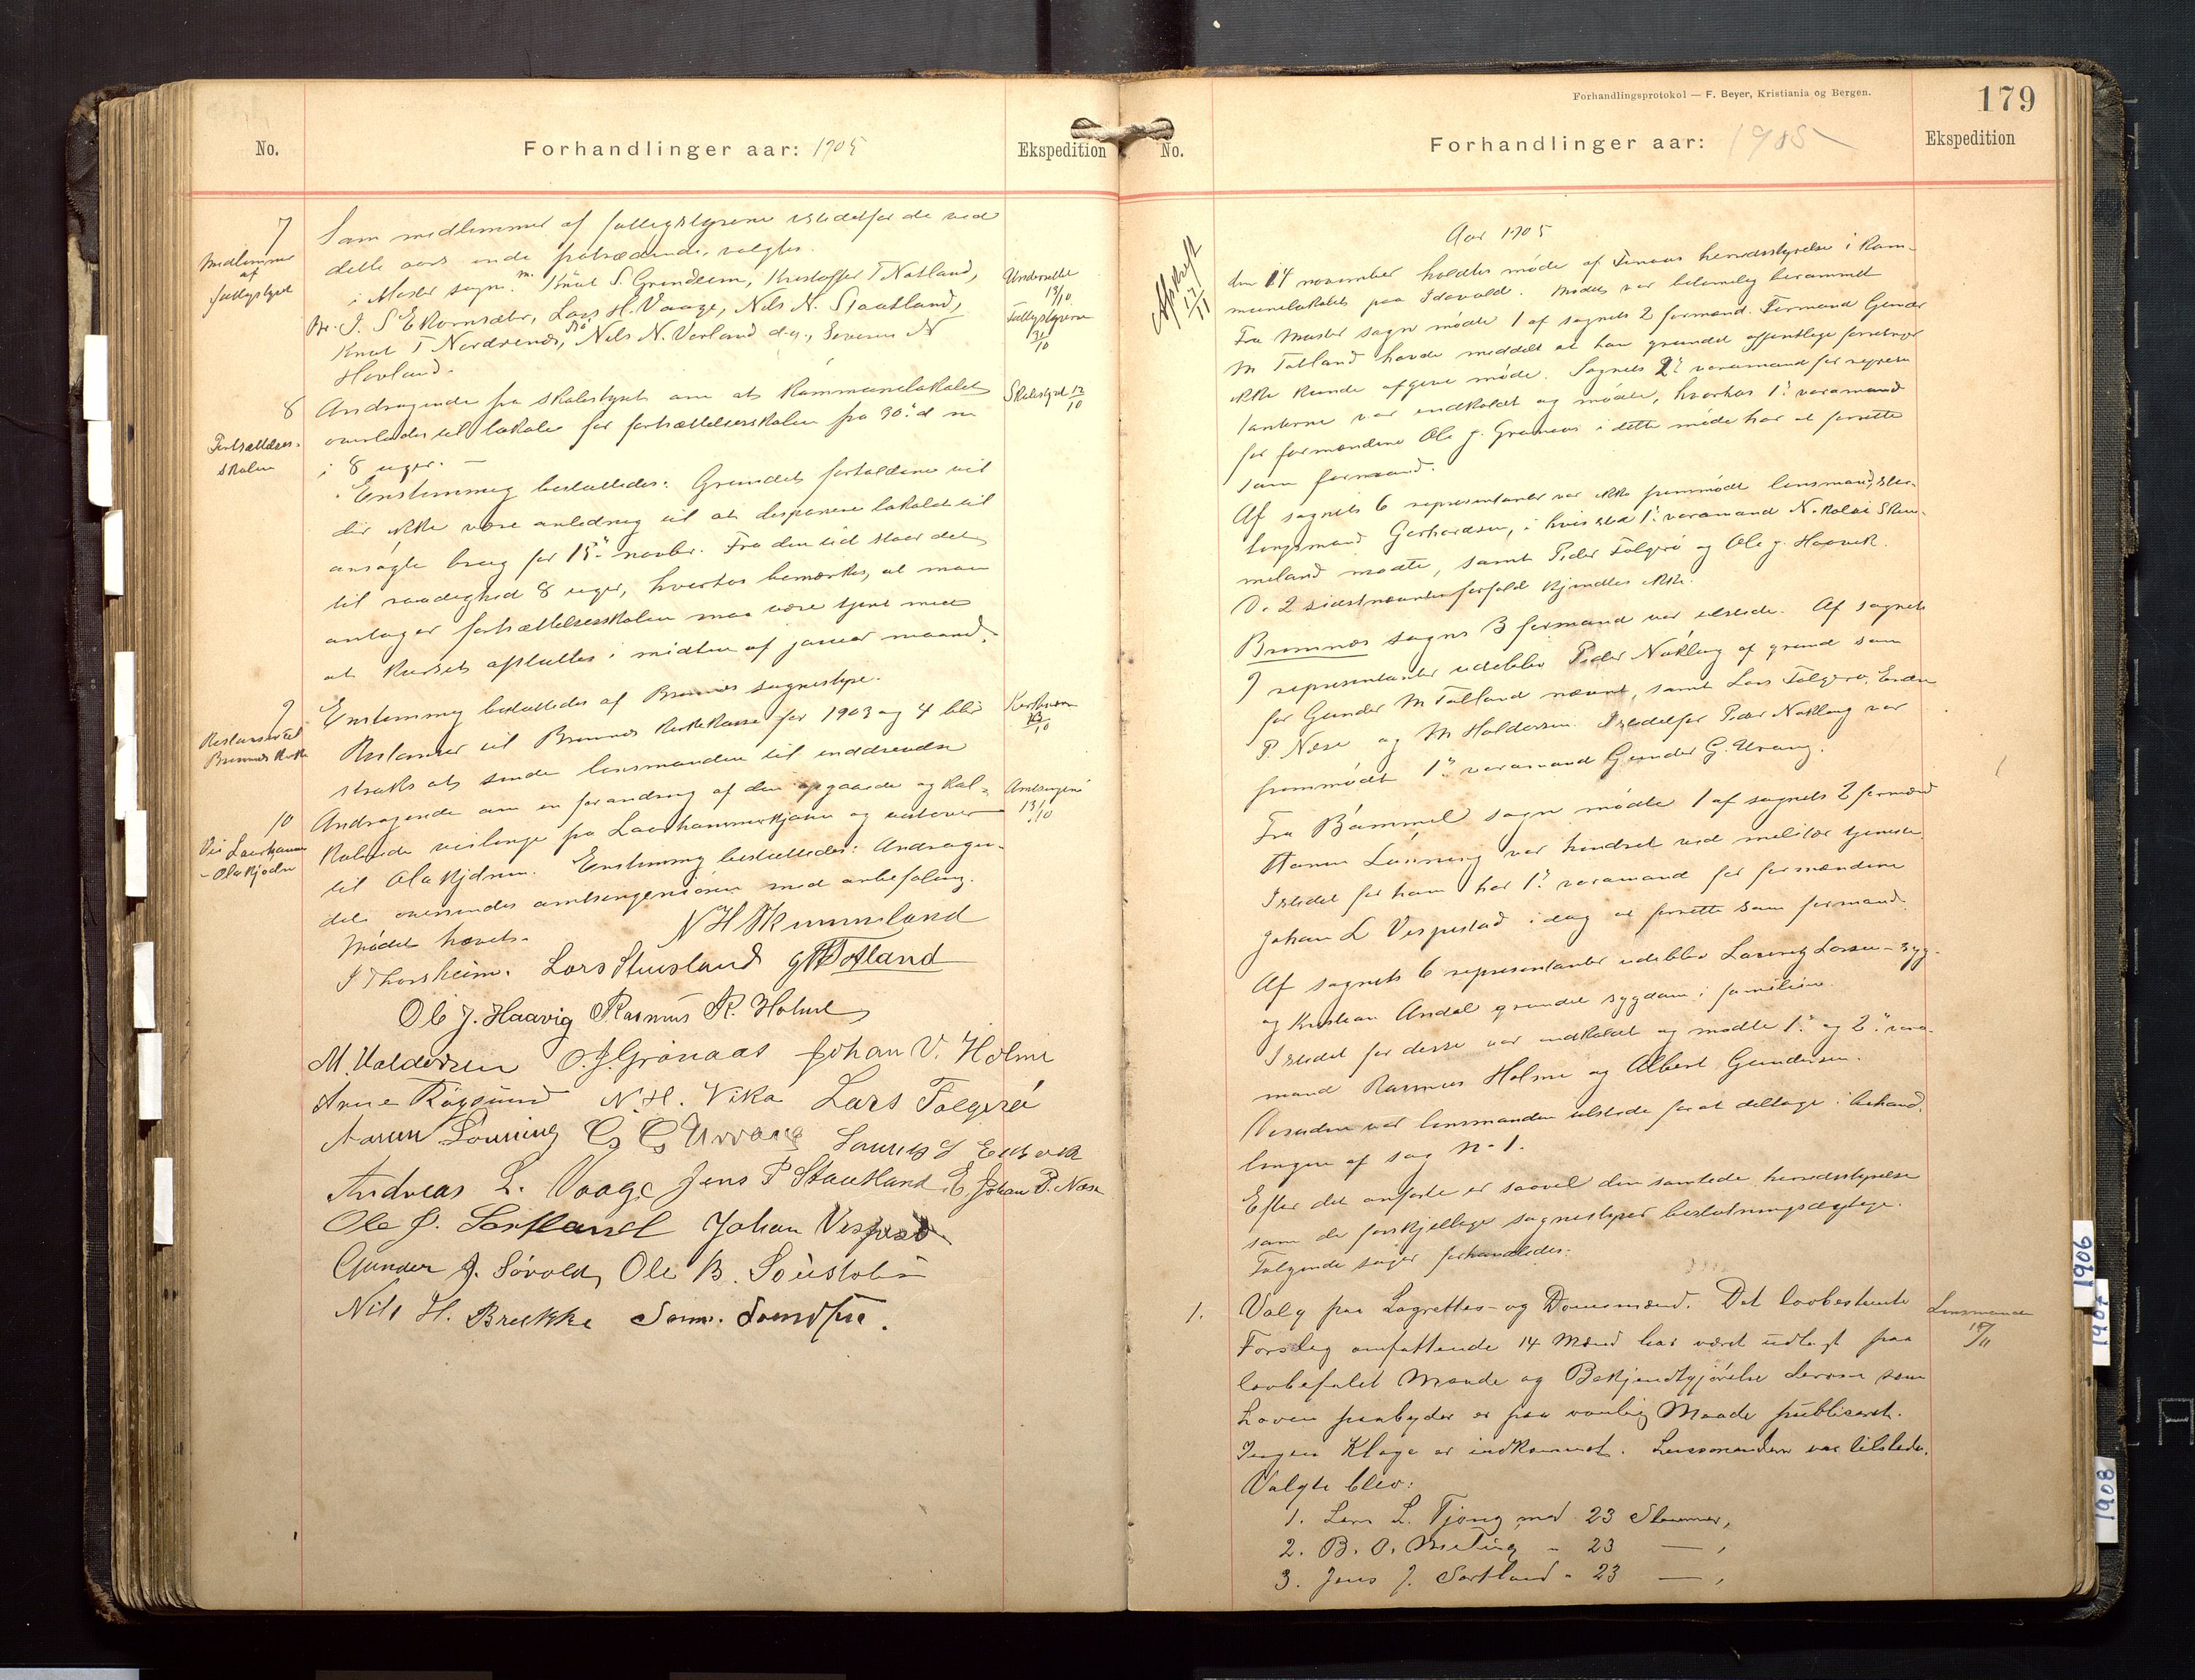 No.
Forhandlinger aar: 1905
Ekspedition
7
Medlemmer
af
fattigstyret
Som medlemmer af fattigstyrene istedetfor de ved
dette aars ende fratrædende, valgtes.
i Moster sogn: Knut S. Grindeim, Kristoffer T Notland,
Br. J. S Ekornsæter, Lars H. Vaage, Nils N. Stautland,
Knut T Nordrenes, Bø. Nels N. Vorland d.y., Severin N
Hovland.
Underrettet
13/10
Fattigstyrerne
31/10
8
Fortsættelses-
skolen
Andragende fra skolestyret om at kommunelokalet
overlades til lokale for fortsættelsesskolen fra 30. d m
i 8 uger. —
Enstemmig besluttedes: Grundet forholdene vil
der ikke være anledning til at disponere lokalet til
ansøgte brug før 15. novbr. Fra den tid staar det
til raadighed 8 uger, hvorhos bemærkes, at man
antager fortsættelsesskolen maa være tjent med
at kurset afsluttes i midten af januar maaned.
Skolestyret 13/10
9
Restancer til
Bremnes kirke
Enstemmig besluttedes af Bremnes sognestyre.
Restancer til Bremnes kirkekasse for 1903 og 4 blir
straks at sende lensmanden til inddrivelse
Kirkeværgen
13/10
10
Vei Laurhammer
- Olakjødn
Andragende om en forandring af den opgaaede og kal-
kulerede veilinje fra Laurhammerkjønn og vestover
til Olakjødnen. Enstemmig besluttedes: Andragen-
det oversendes amtsingeniøren med anbefaling.
Amtsingeniør
13/10
Mødet hævet.
N H Skimmeland
J Thorsheim. Lars Stuvland G M Totland
Ole J. Haavig Rasmus R. Holme
M. Haldorsen O. J. Grønaas Johan V. Holme
Arne Røgsund N. H. Vika Lars Følgerø
Aamun Lønning G G Urvang Laurits J Eidsvik
Andreas L. Vaage Jens P Stautland E. Johan P. Næse
Ole J. Sortland Johan Vespestad
Gunder J. Søvold, Ole B. Soustøbø
Nils H. Brekke Sam. Sandhie.
Forhandlingsprotokol — F. Beyer, Kristiania og Bergen.
179
No.
Forhandlinger aar: 1905
Ekspedition
Afskrift
17/11
Aar 1905
den 14 november holdtes møde af Finaas herredsstyrelse i kom-
munelokalet paa Idavold. Mødet var betimelig berammet
Fra Moster sogn mødte 1 af sognets 2 formænd. Formand Gunder
M Totland havde meddelt at han grundet offentlige forretninger
ikke kunde afgive møde. Sognets 2den varamand for repræsen
tanterne var indkaldt og mødte, hvorhos 1. varamand
for formændene Ole J. Grønaas i dette møde har at forrette
som formand.
Af sognets 6 repræsentanter var ikke fremmødt lensmand, stor-
tingsmand Gerhardsen, i hvis sted 1. varamand Nikolai Skim-
meland mødte, samt Peder Følgerø og Ole J. Haavik.
De 2 sidstnævntes forfald kjendtes ikke.
Bremnes sogns 3 formænd var tilstede. Af sognets
9 repræsentanter udeblev Peder Nøkling af grund som
for Gunder M Totland nævnt, samt Lars Følgerø, Endre
P. Næse og M Haldorsen. Istedetfor Peder Nøkling var
fremmødt 1. varamand Gunder G. Urvang.
Fra Bømmel sogn mødte 1 af sognets 2 formænd
Aamun Lønning var hindret ved militær tjeneste.
Istedet for ham har 1. varamand for formændene
Johan L Vespestad idag at forrette som formand.
Af sognets 6 repræsentanter udeblev Lauritz Larsen – syg.
og Kristian Andal grundet sygdom i familien.
Istedet for desse var indkaldt og mødte 1. og 2. vara-
mand Rasmus Holme og Albert Gundersen.
Desuden var lensmanden tilstede for at deltage i behand-
lingen af sag n. 1.
Efter det anførte er saavel den samlede herredsstyrelse
som de forskjellige sognestyrer beslutningsdygtige.
Følgende sager forhandledes:
1.
Valg paa Lagrettes- og Domsmænd. Det lovbestemte
Forslag omfattende 14 Mænd har været udlagt paa
lovbefalet Maade og Bekjendtgjørelse derom som
Loven paabyder er paa vanlig Maade publiceret.
Ingen Klage er indkommet. Lensmanden var tilstede.
Valgte blev:
1. Lars L. Tjong med 23 Stemmer,
2. B. O. Meling " 23 — ,
3. Jens J. Sortland " 23 — ,
Lensmanden
17/11
1906
1907
1908